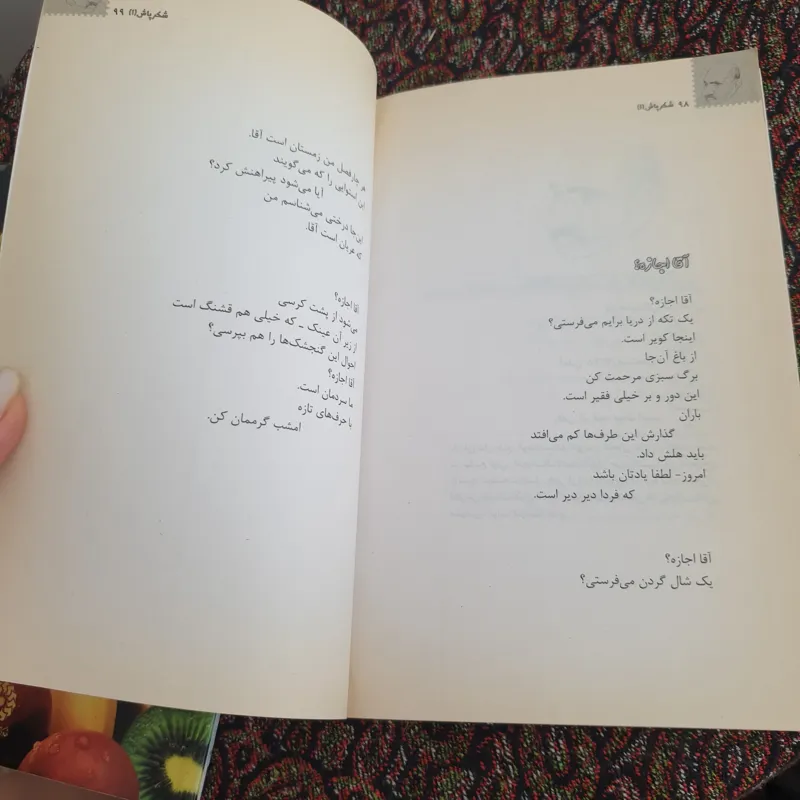 ۹۸ شکرپاش(۱)
آقا اجازه؟
آقا اجازه؟
یک تکه از دریا برایم می‌فرستی؟
اینجا کویر است.
از باغ آن‌جا
برگ سبزی مرحمت کن
این دور و بر خیلی فقیر است.
باران
گذارش این طرف‌ها کم می‌افتد
باید هلش داد.
امروز- لطفا یادتان باشد
که فردا دیر دیر است.
آقا اجازه؟
یک شال گردن می‌فرستی؟
شکرپاش(۱) ۹۹
هر چار فصل من زمستان است آقا.
این استوایی را که می‌گویند
آیا می‌شود پیراهنش کرد؟
این‌جا درختی می‌شناسم من
که عریان است آقا.
آقا اجازه؟
می‌شود از پشت کرسی
از زیر آن عینک - که خیلی هم قشنگ است
احوال این گنجشک‌ها را هم بپرسی؟
آقا اجازه؟
ما سردمان است.
با حرف‌های تازه
امشب گرممان کن.